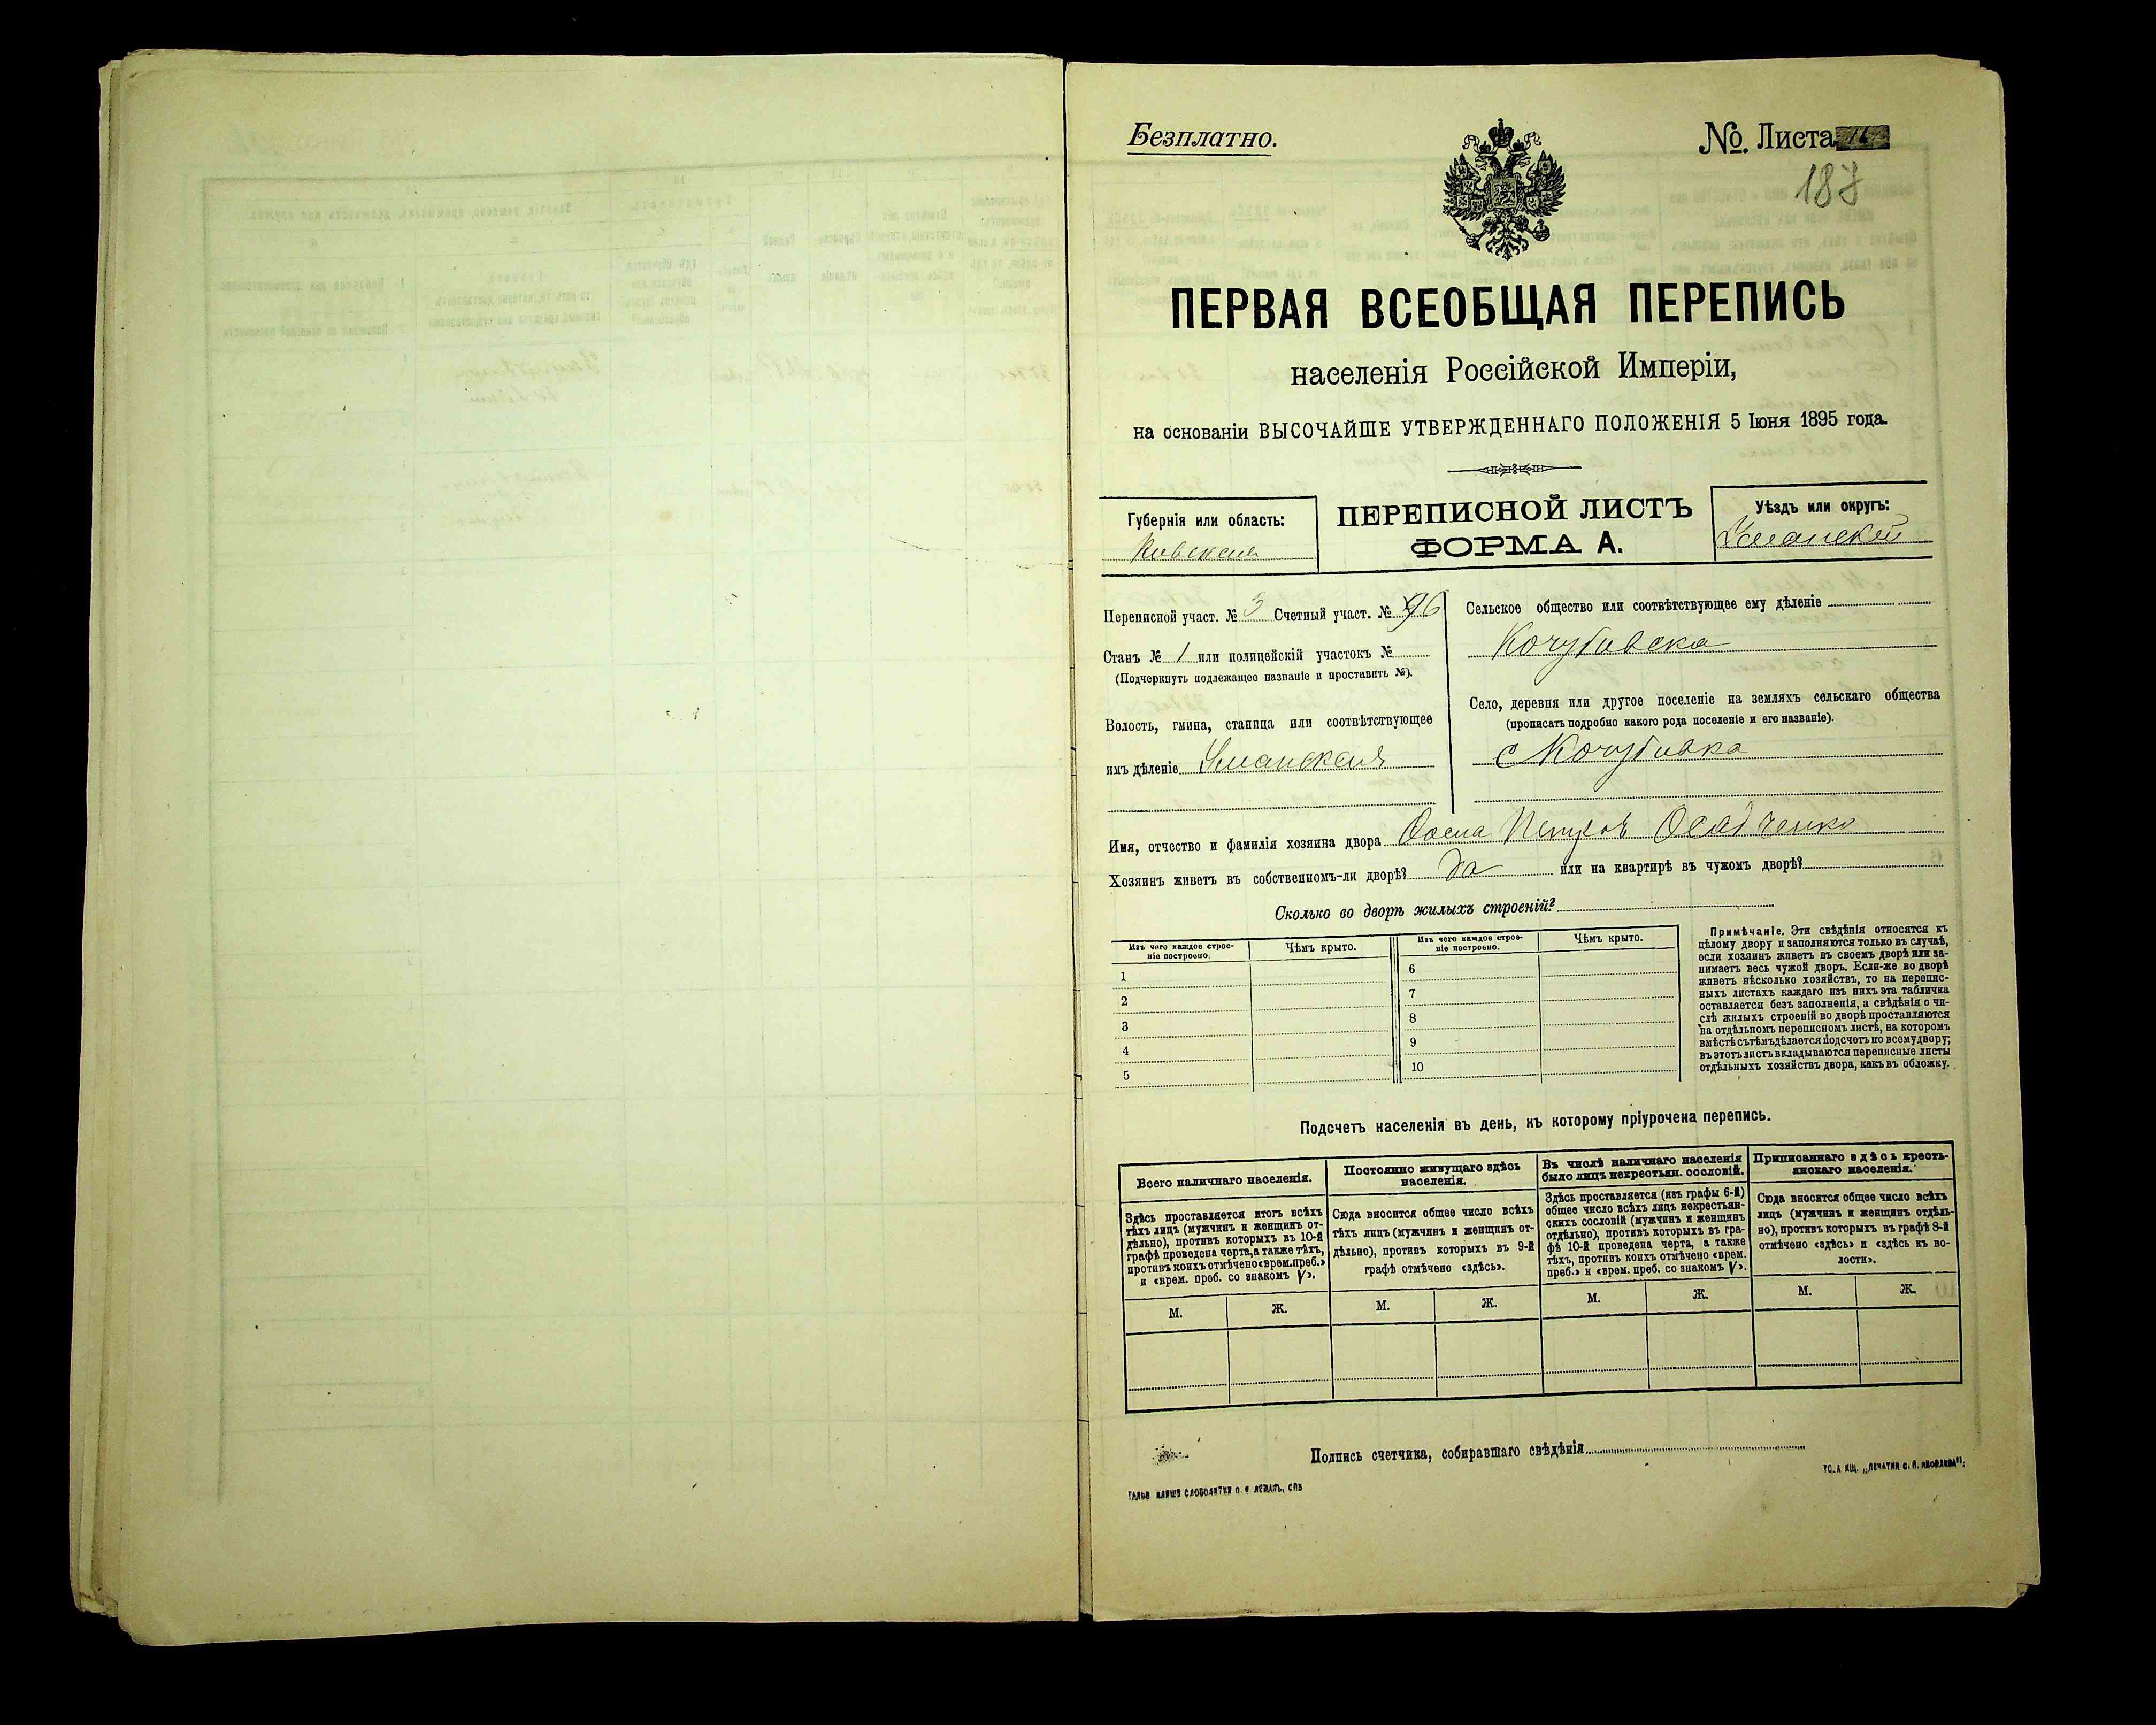 Безплатно.
№. Листа
187
ПЕРВАЯ ВСЕОБЩАЯ ПЕРЕПИСЬ
населенія Россійской Имперіи,
на основаніи ВЫСОЧАЙШЕ УТВЕРЖДЕННАГО ПОЛОЖЕНІЯ 5 Іюня 1895 года.
Губернія или область:
Киевская
ПЕРЕПИСНОЙ ЛИСТЪ
ФОРМА А.
Уѣздъ или округъ:
Уманский
Переписной участ. № 3 Счетный участ. № 96
Станъ № 1 или полицейскій участокъ №
(Подчеркнуть подлежащее названіе и проставить №).
Волость, гмина, станица или соотвѣтствующее
имъ дѣленіе Уманская
Сельское общество или соотвѣтствующее ему дѣленіе
Кочубивска
Село, деревня или другое поселеніе на земляхъ сельскаго общества
(прописать подробно какого рода поселеніе и его названіе).
с Кочубивка
Имя, отчество и фамилія хозяина двора Петров Осадченко
Хозяинъ живетъ въ собственномъ-ли дворѣ? да или на квартирѣ въ чужомъ дворѣ?
Сколько во дворѣ жилыхъ строеній?
Изъ чего каждое строе-
ніе построено.
Чѣмъ крыто.
Изъ чего каждое строе-
ніе построено.
Чѣмъ крыто.
1
2
3
4
5
6
7
8
9
10
Примѣчаніе. Эти свѣдѣнія относятся къ
цѣлому двору и заполняются только въ случаѣ,
если хозяинъ живетъ въ своемъ дворѣ или за-
нимаетъ весь чужой дворъ. Если-же во дворѣ
живетъ нѣсколько хозяйствъ, то на перепис-
ныхъ листахъ каждаго изъ нихъ эта табличка
оставляется безъ заполненія, а свѣдѣнія о чи-
слѣ жилыхъ строеній во дворѣ проставляются
на отдѣльномъ переписномъ листѣ, на которомъ
вмѣстѣ съ тѣмъ дѣлается подсчетъ по всему двору;
въ этотъ листъ вкладываются переписные листы
отдѣльныхъ хозяйствъ двора, какъ въ обложку.
Подсчетъ населенія въ день, къ которому пріурочена перепись.
Всего наличнаго населенія.
Здѣсь проставляется итогъ всѣхъ
тѣхъ лицъ (мужчинъ и женщинъ от-
дѣльно), противъ которыхъ въ 10-й
графѣ проведена черта, а также тѣхъ,
противъ коихъ отмѣчено «врем. преб.»
и «врем. преб. со знакомъ V».
Постоянно живущаго здѣсь
населенія.
Сюда вносится общее число всѣхъ
тѣхъ лицъ (мужчинъ и женщинъ от-
дѣльно), противъ которыхъ въ 9-й
графѣ отмѣчено «здѣсь».
Въ числѣ наличнаго населенія
было лицъ некрестьян. сословій.
Здѣсь проставляется (изъ графы 6-й)
общее число всѣхъ лицъ некрестьян-
скихъ сословій (мужчинъ и женщинъ
отдѣльно), противъ которыхъ въ гра-
фѣ 10-й проведена черта, а также
тѣхъ, противъ коихъ отмѣчено «врем.
преб.» и «врем. преб. со знакомъ V».
Приписаннаго здѣсь кресть-
янскаго населенія.
Сюда вносится общее число всѣхъ
лицъ (мужчинъ и женщинъ отдѣль-
но), противъ которыхъ въ графѣ 8-й
отмѣчено «здѣсь» и «здѣсь къ во-
лости».
М. Ж. М. Ж. М. Ж. М. Ж.
Подпись счетчика, собиравшаго свѣдѣнія